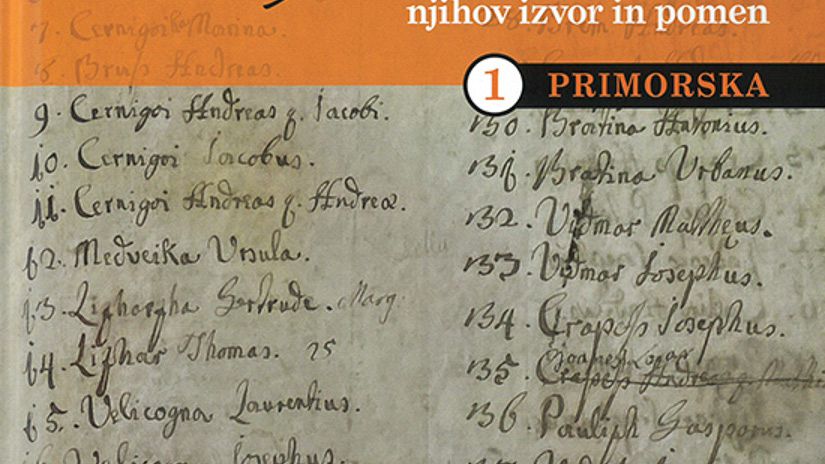 njihov izvor in pomen
1 PRIMORSKA
7. Cernigoika Marina.
8. Bruss Andreas.
9. Cernigoi Andreas q. Iacobi.
10. Cernigoi Iacobus.
11. Cernigoi Andreas q. Andreæ.
12. Medveika Ursula.
13. Gertrude. Marg
14. Liphar Thomas. 25
15. Velicogna Laurentius.
Velicogna Josephus.
130. Bratina Antonius.
131. Bratina Urbanus.
132. Vidmar Mattheus.
133. Vidmar Josephus.
134. Crapess Josephus.
135. Crapess Andreas q.
136. Pauliph Gasparus.